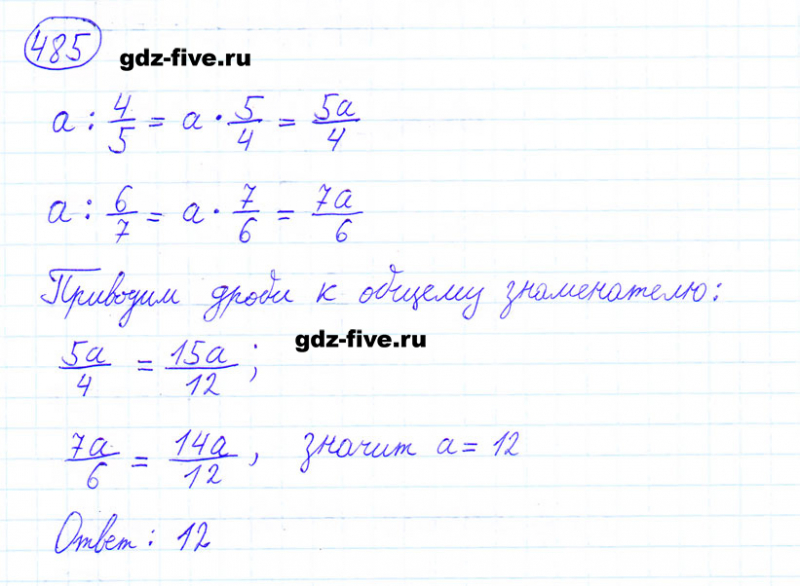 485
gdz-five.ru
a : 4/5 = a · 5/4 = 5a/4
a : 6/7 = a · 7/6 = 7a/6
Приводим дроби к общему знаменателю:
gdz-five.ru
5a/4 = 15a/12 ;
7a/6 = 14a/12 , значит a = 12
Ответ: 12